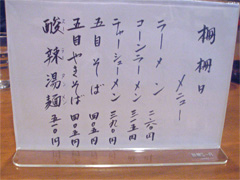 柵柵日
メニュー
ラーメン 二六〇円
コーンラーメン 三一五円
チャーシューメン 三九〇円
五目そば 四〇五円
五目やきそば 四〇五円
酸辣湯麺 五一〇円